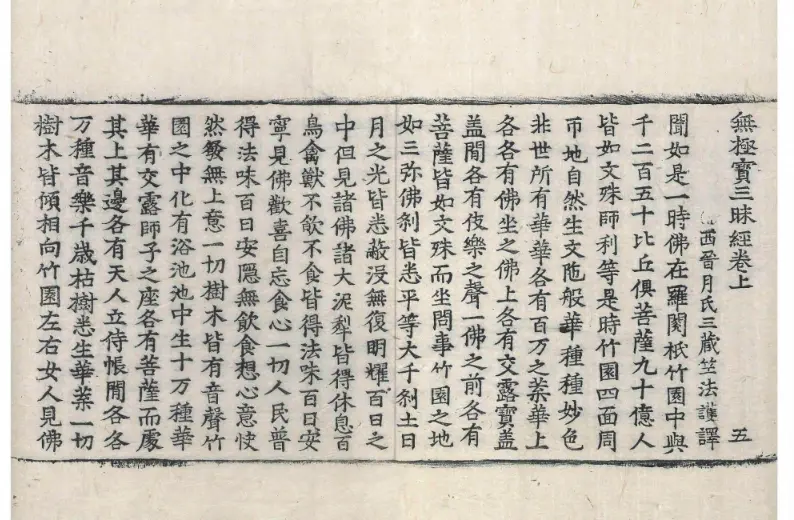 無極寶三昧經卷上 五
西晉月氏三藏竺法護譯
聞如是一時佛在羅閱祇竹園中與
千二百五十比丘俱菩薩九十億人
皆如文殊師利等是時竹園四面周
帀地自然生文陁般華種種妙色
非世所有華華各有百万之葉華上
各各有佛坐之佛上各有交露寶盖
盖間各有伎樂之聲一佛之前各有
菩薩皆如文殊而坐問事竹園之地
如三弥佛剎皆悉平等大千剎土日
月之光皆悉蔽沒無復明耀百日之
中但見諸佛諸大泥犁皆得休息百
鳥禽獸不飲不食皆得法味百日安
寧見佛歡喜自忘食心一切人民普
得法味百日安隱無飲食想心意快
然發無上意一切樹木皆有音聲竹
園之中化有浴池池中生十万種華
華有交露師子之座各有菩薩而處
其上其邊各有天人立侍帳間各各
万種音樂千歲枯樹悉生華葉一切
樹木皆傾相向竹園左右女人見佛